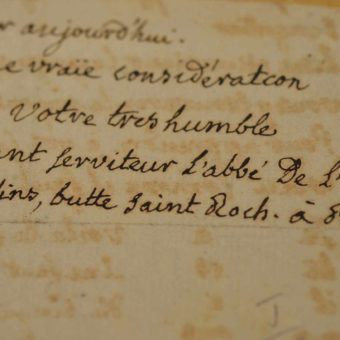 r aujourd'hui.
e vraïe considératcon
votre tres humble
ant serviteur l'abbé De l'
lins, butte saint Roch. à